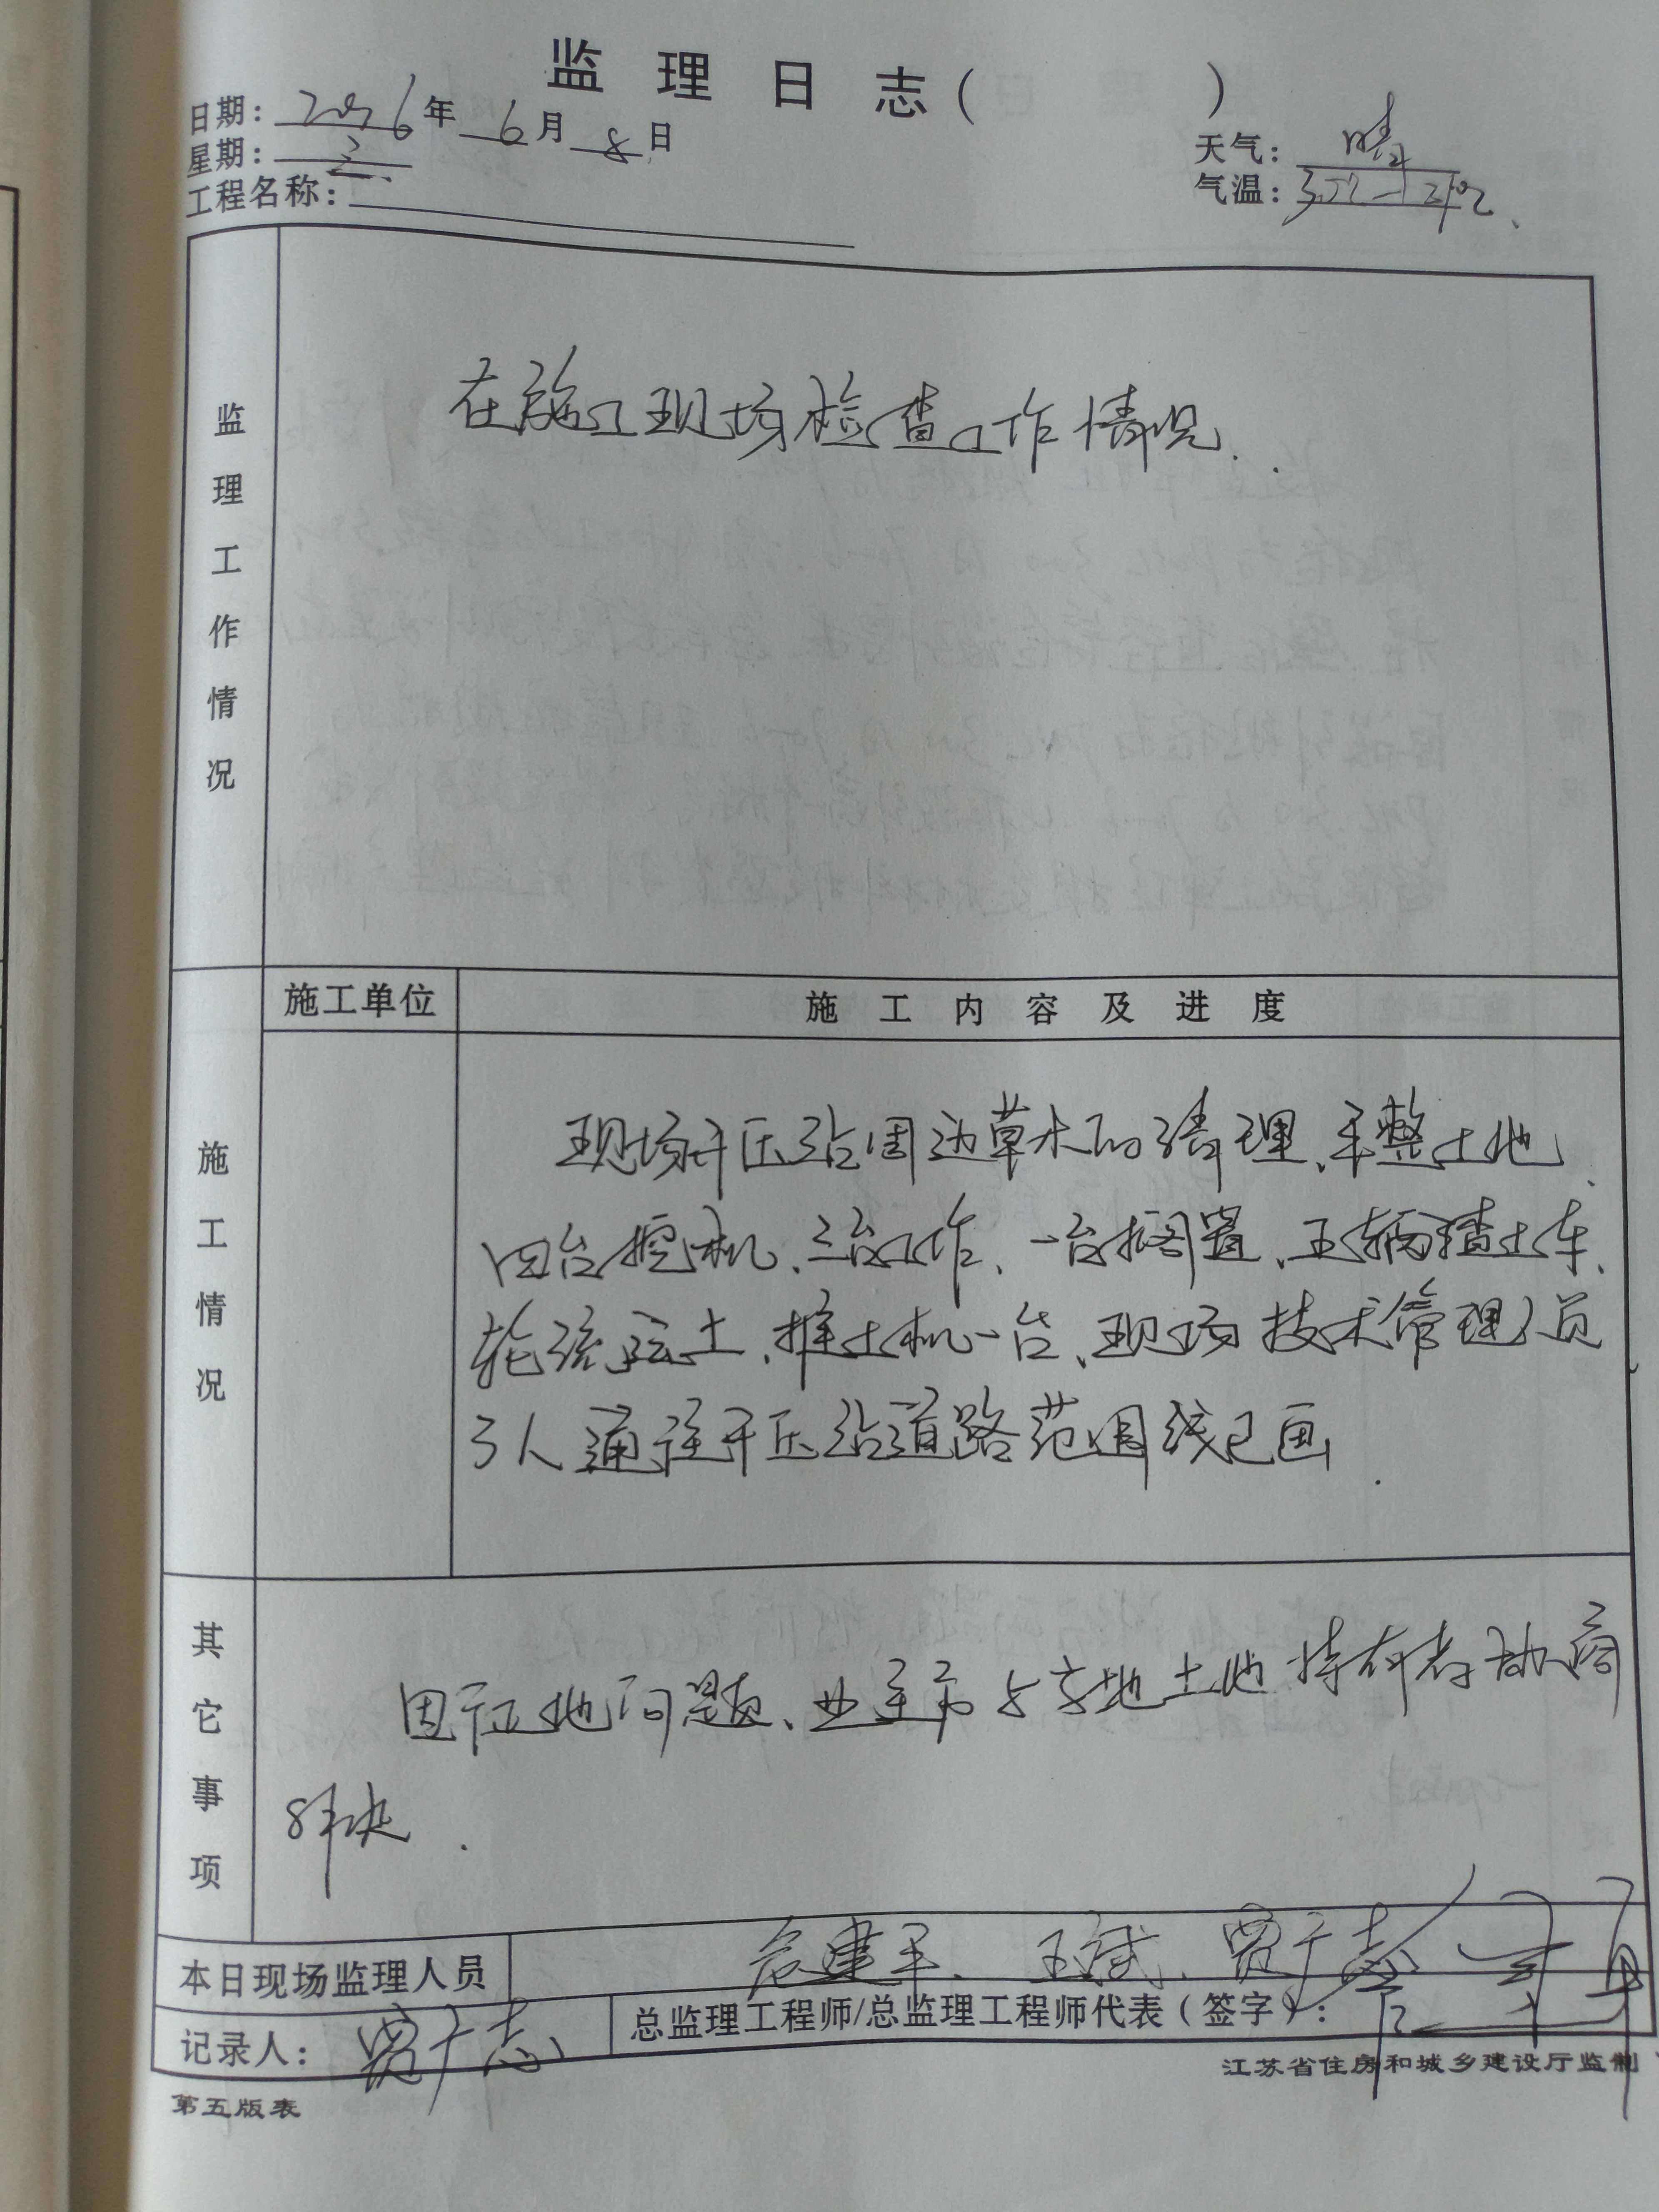 监理日志(        )
日期: 2016年 6月 8日
星期: 三
天气: 晴
工程名称:
气温:
监理工作情况
在施工现场检查工作情况.
施工单位
施工内容及进度
施工情况
现场开压站周边草木的清理、平整土地、
四台挖机、三台工作、一台搁置、五辆渣土车、
轮流运土、推土机一台、现场技术管理人员
3人 通往开压站道路范围线已画.
其它事项
因征地问题、业主方与当地土地持有者协商
解决.
本日现场监理人员
建平、王斌、贾广志
记录人: 贾广志
总监理工程师/总监理工程师代表(签字):
江苏省住房和城乡建设厅监制
第五版表